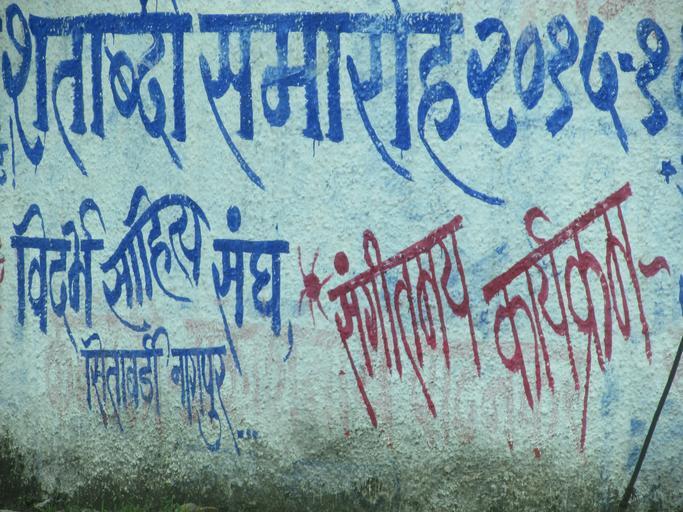 शताब्दी समारोह २०१५-१
विदर्भ साहित्य संघ,
सिताबर्डी नागपुर...
संगीतमय कार्यक्रम